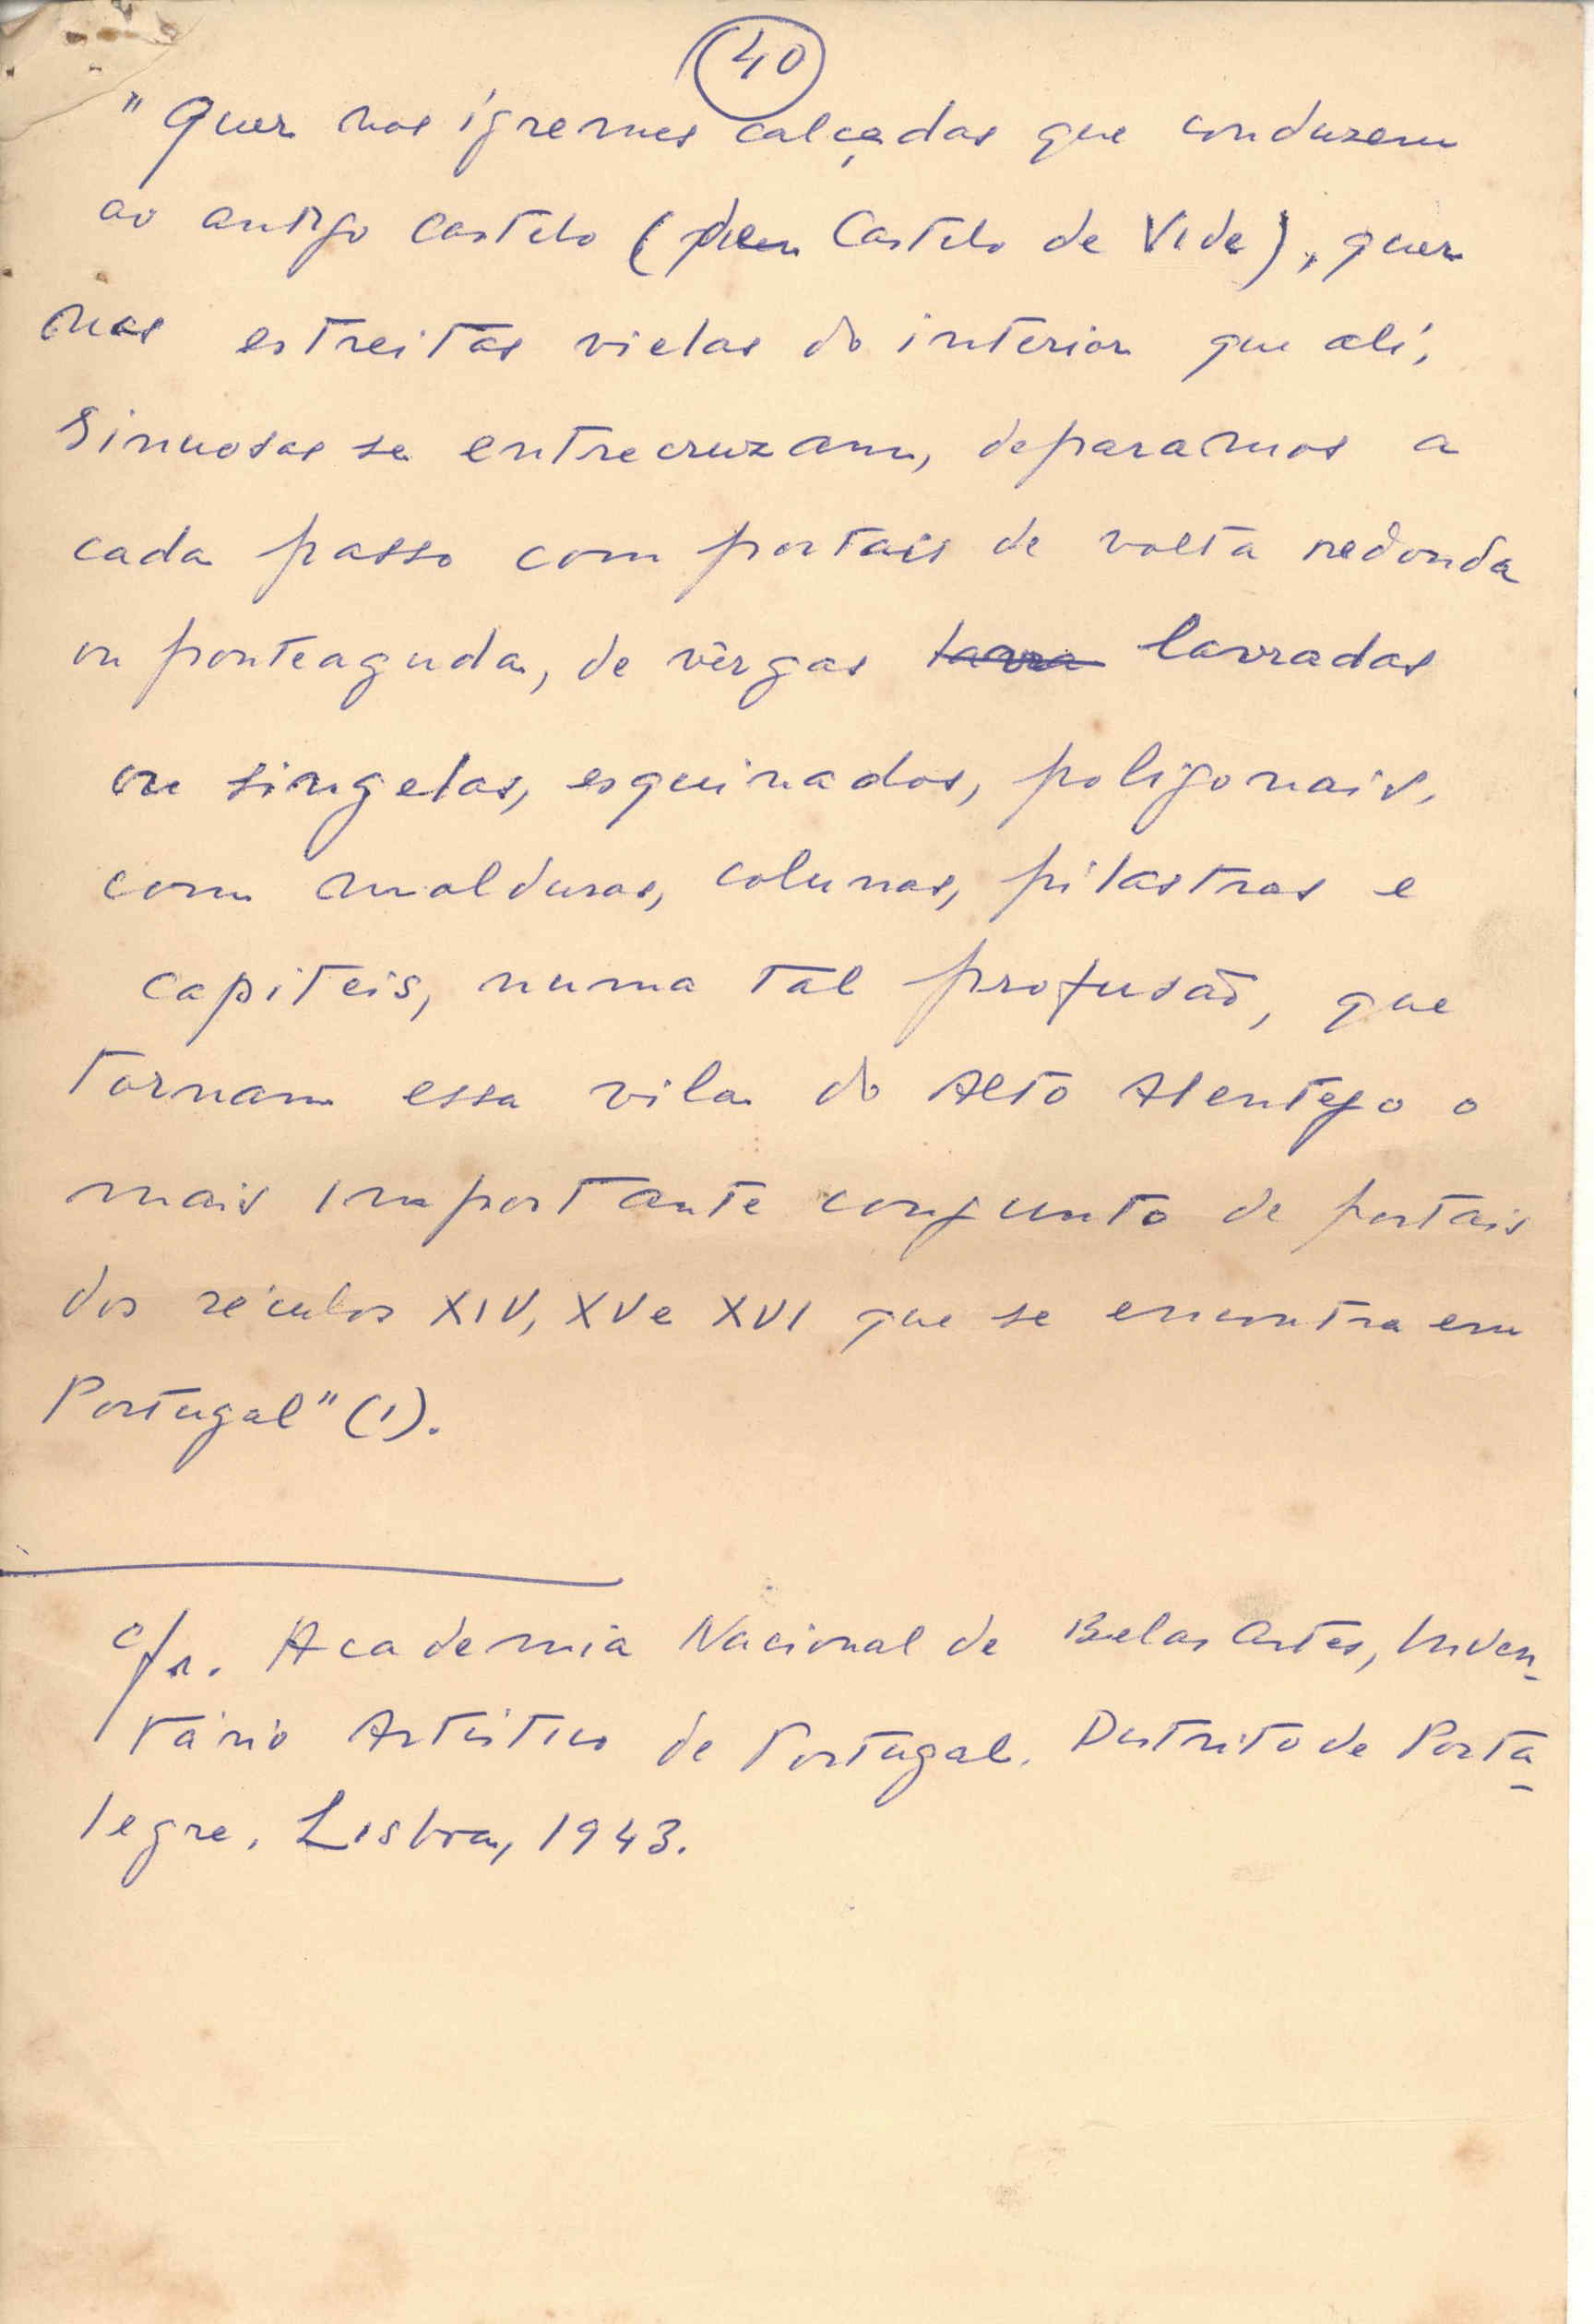 40
"Quer nas ígremes calçadas que conduzem
ao antigo castelo (em Castelo de Vide), quer
nas estreitas vielas do interior que alí,
sinuosas se entrecruzam, deparamos a
cada passo com portais de volta redonda
ou ponteaguda, de vêrgas lavra lavradas
ou singelas, esquinados, poligonais,
com molduras, colunas, pilastras e
capiteis, numa tal profusão, que
tornam essa vila do Alto Alentejo o
mais importante conjunto de portais
dos séculos XIV, XV e XVI que se encontra em
Portugal" (1).
c/r. Academia Nacional de Belas Artes, Inven-
tário Artístico de Portugal. Distrito de Porta-
legre. Lisboa, 1943.